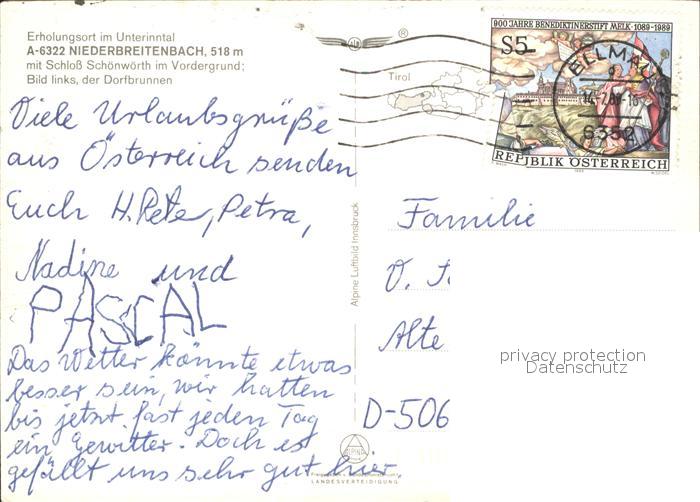 Erholungsort im Unterinntal
A-6322 NIEDERBREITENBACH, 518 m
mit Schloß Schönwörth im Vordergrund;
Bild links, der Dorfbrunnen
Viele Urlaubsgrüße
aus Österreich senden
Euch H. Peter, Petra,
Nadine und
PASCAL
Das Wetter könnte etwas
besser sein, wir hatten
bis jetzt fast jeden Tag
ein Gewitter. Doch es
gefällt uns sehr gut hier.
®
®
Tirol
Alpine Luftbild Innsbruck
900 JAHRE BENEDIKTINERSTIFT MELK · 1089-1989
S5
REPUBLIK ÖSTERREICH
ELLMAU
6352
Familie
Alte
D-506
privacy protection
Datenschutz
ALPINE
LANDESVERTEIDIGUNG